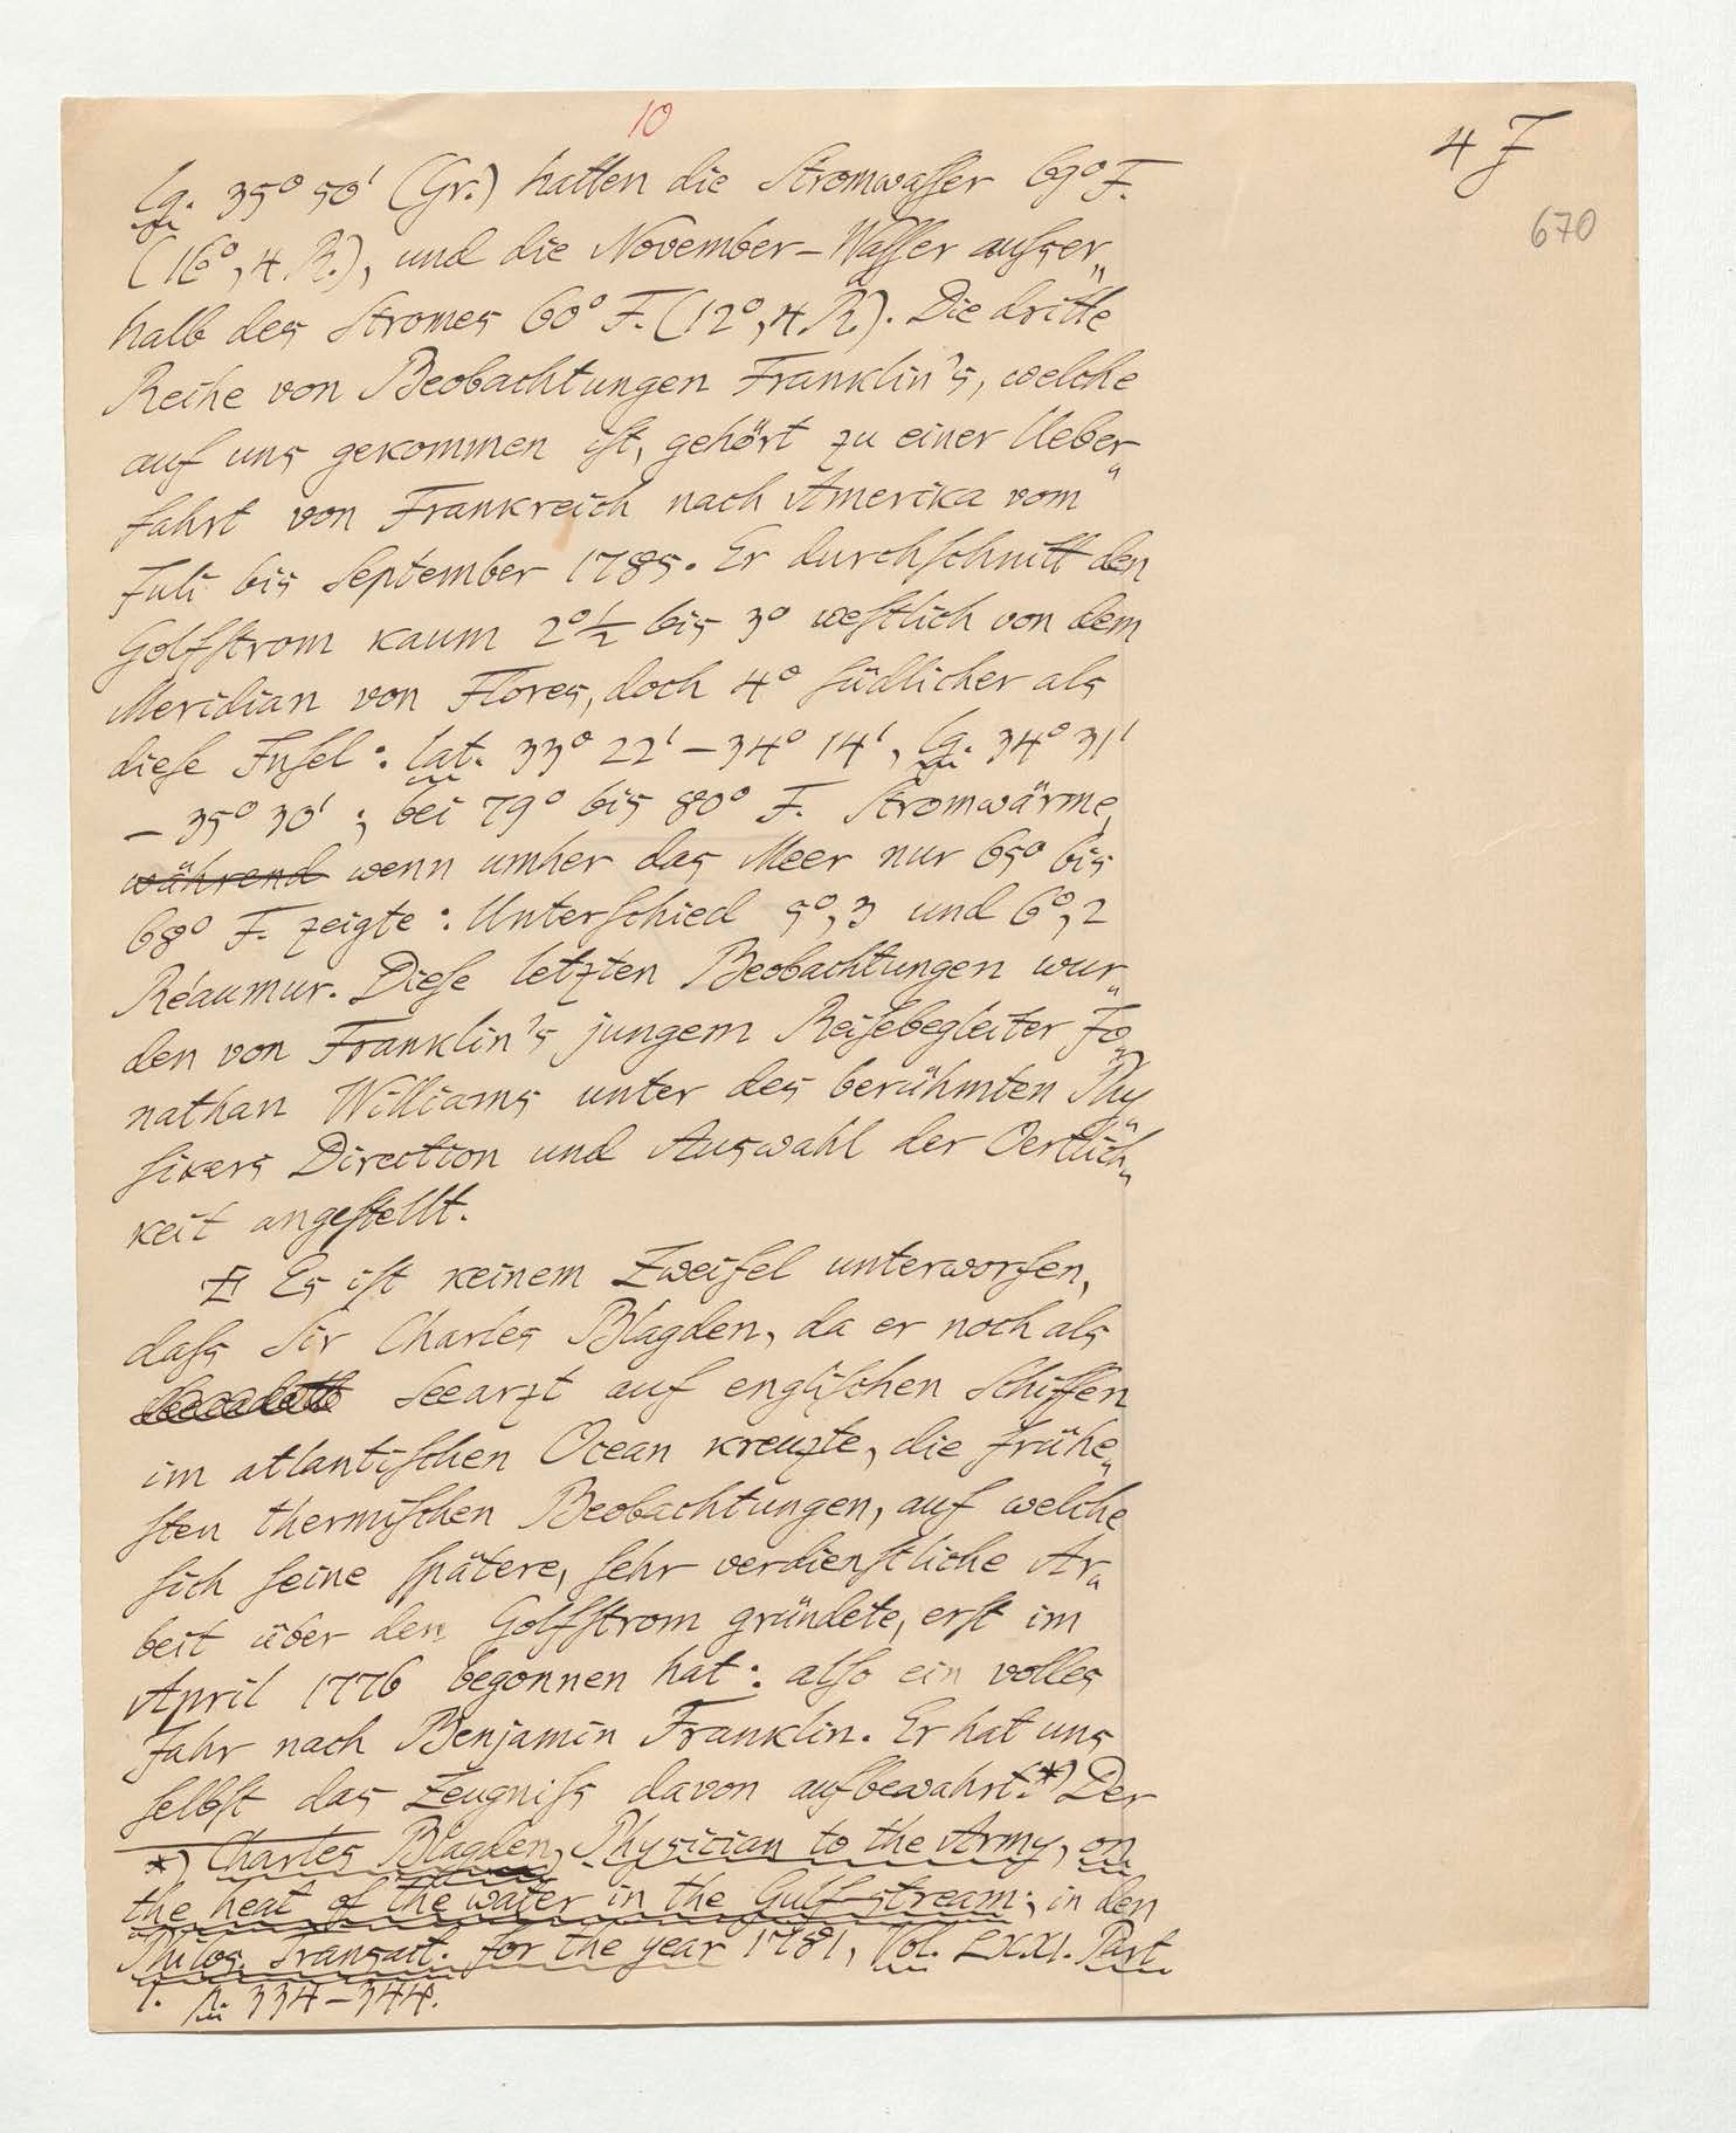 10
4 J
670
lg. 35° 50' (Gr.) hatten die Stromwasser 69° F.
(16°,4 R.), und die November-Wasser ausser„
halb des Stromes 60° F. (12°,4 R.). Die dritte
Reihe von Beobachtungen Franklin's, welche
auf uns gekommen ist, gehört zu einer Ueber„
fahrt von Frankreich nach Amerika vom
Juli bis September 1785. Er durchschnitt den
Golfstrom kaum 2°½ bis 3° westlich von dem
Meridian von Flores, doch 4° südlicher als
diese Insel: lat. 33° 22' – 34° 14', lg. 34° 31'
– 35° 30'; bei 79° bis 80° F. Stromwärme,
während wenn umher das Meer nur 65° bis
68° F. zeigte: Unterschied 5°,3 und 6°,2
Réaumur. Diese letzten Beobachtungen wur„
den von Franklin's jungem Reisebegleiter Jo„
nathan Williams unter des berühmten Phy„
sikers Direction und Auswahl der Oertlich„
keit angestellt.
Es ist keinem Zweifel unterworfen,
dass Sir Charles Blagden, da er noch als
Seearzt auf englischen Schiffen
im atlantischen Ocean kreuzte, die frühe„
sten thermischen Beobachtungen, auf welche
sich seine spätere, sehr verdienstliche Ar„
beit über den Golfstrom gründete, erst im
April 1776 begonnen hat: also ein volles
Jahr nach Benjamin Franklin. Er hat uns
selbst das Zeugniss davon aufbewahrt.*) Der
*) Charles Blagden, Physician to the Army, on
the heat of the water in the Gulf-stream; in den
Philos. Transact. for the year 1781, Vol. LXXI. Part
I. p. 334–344.